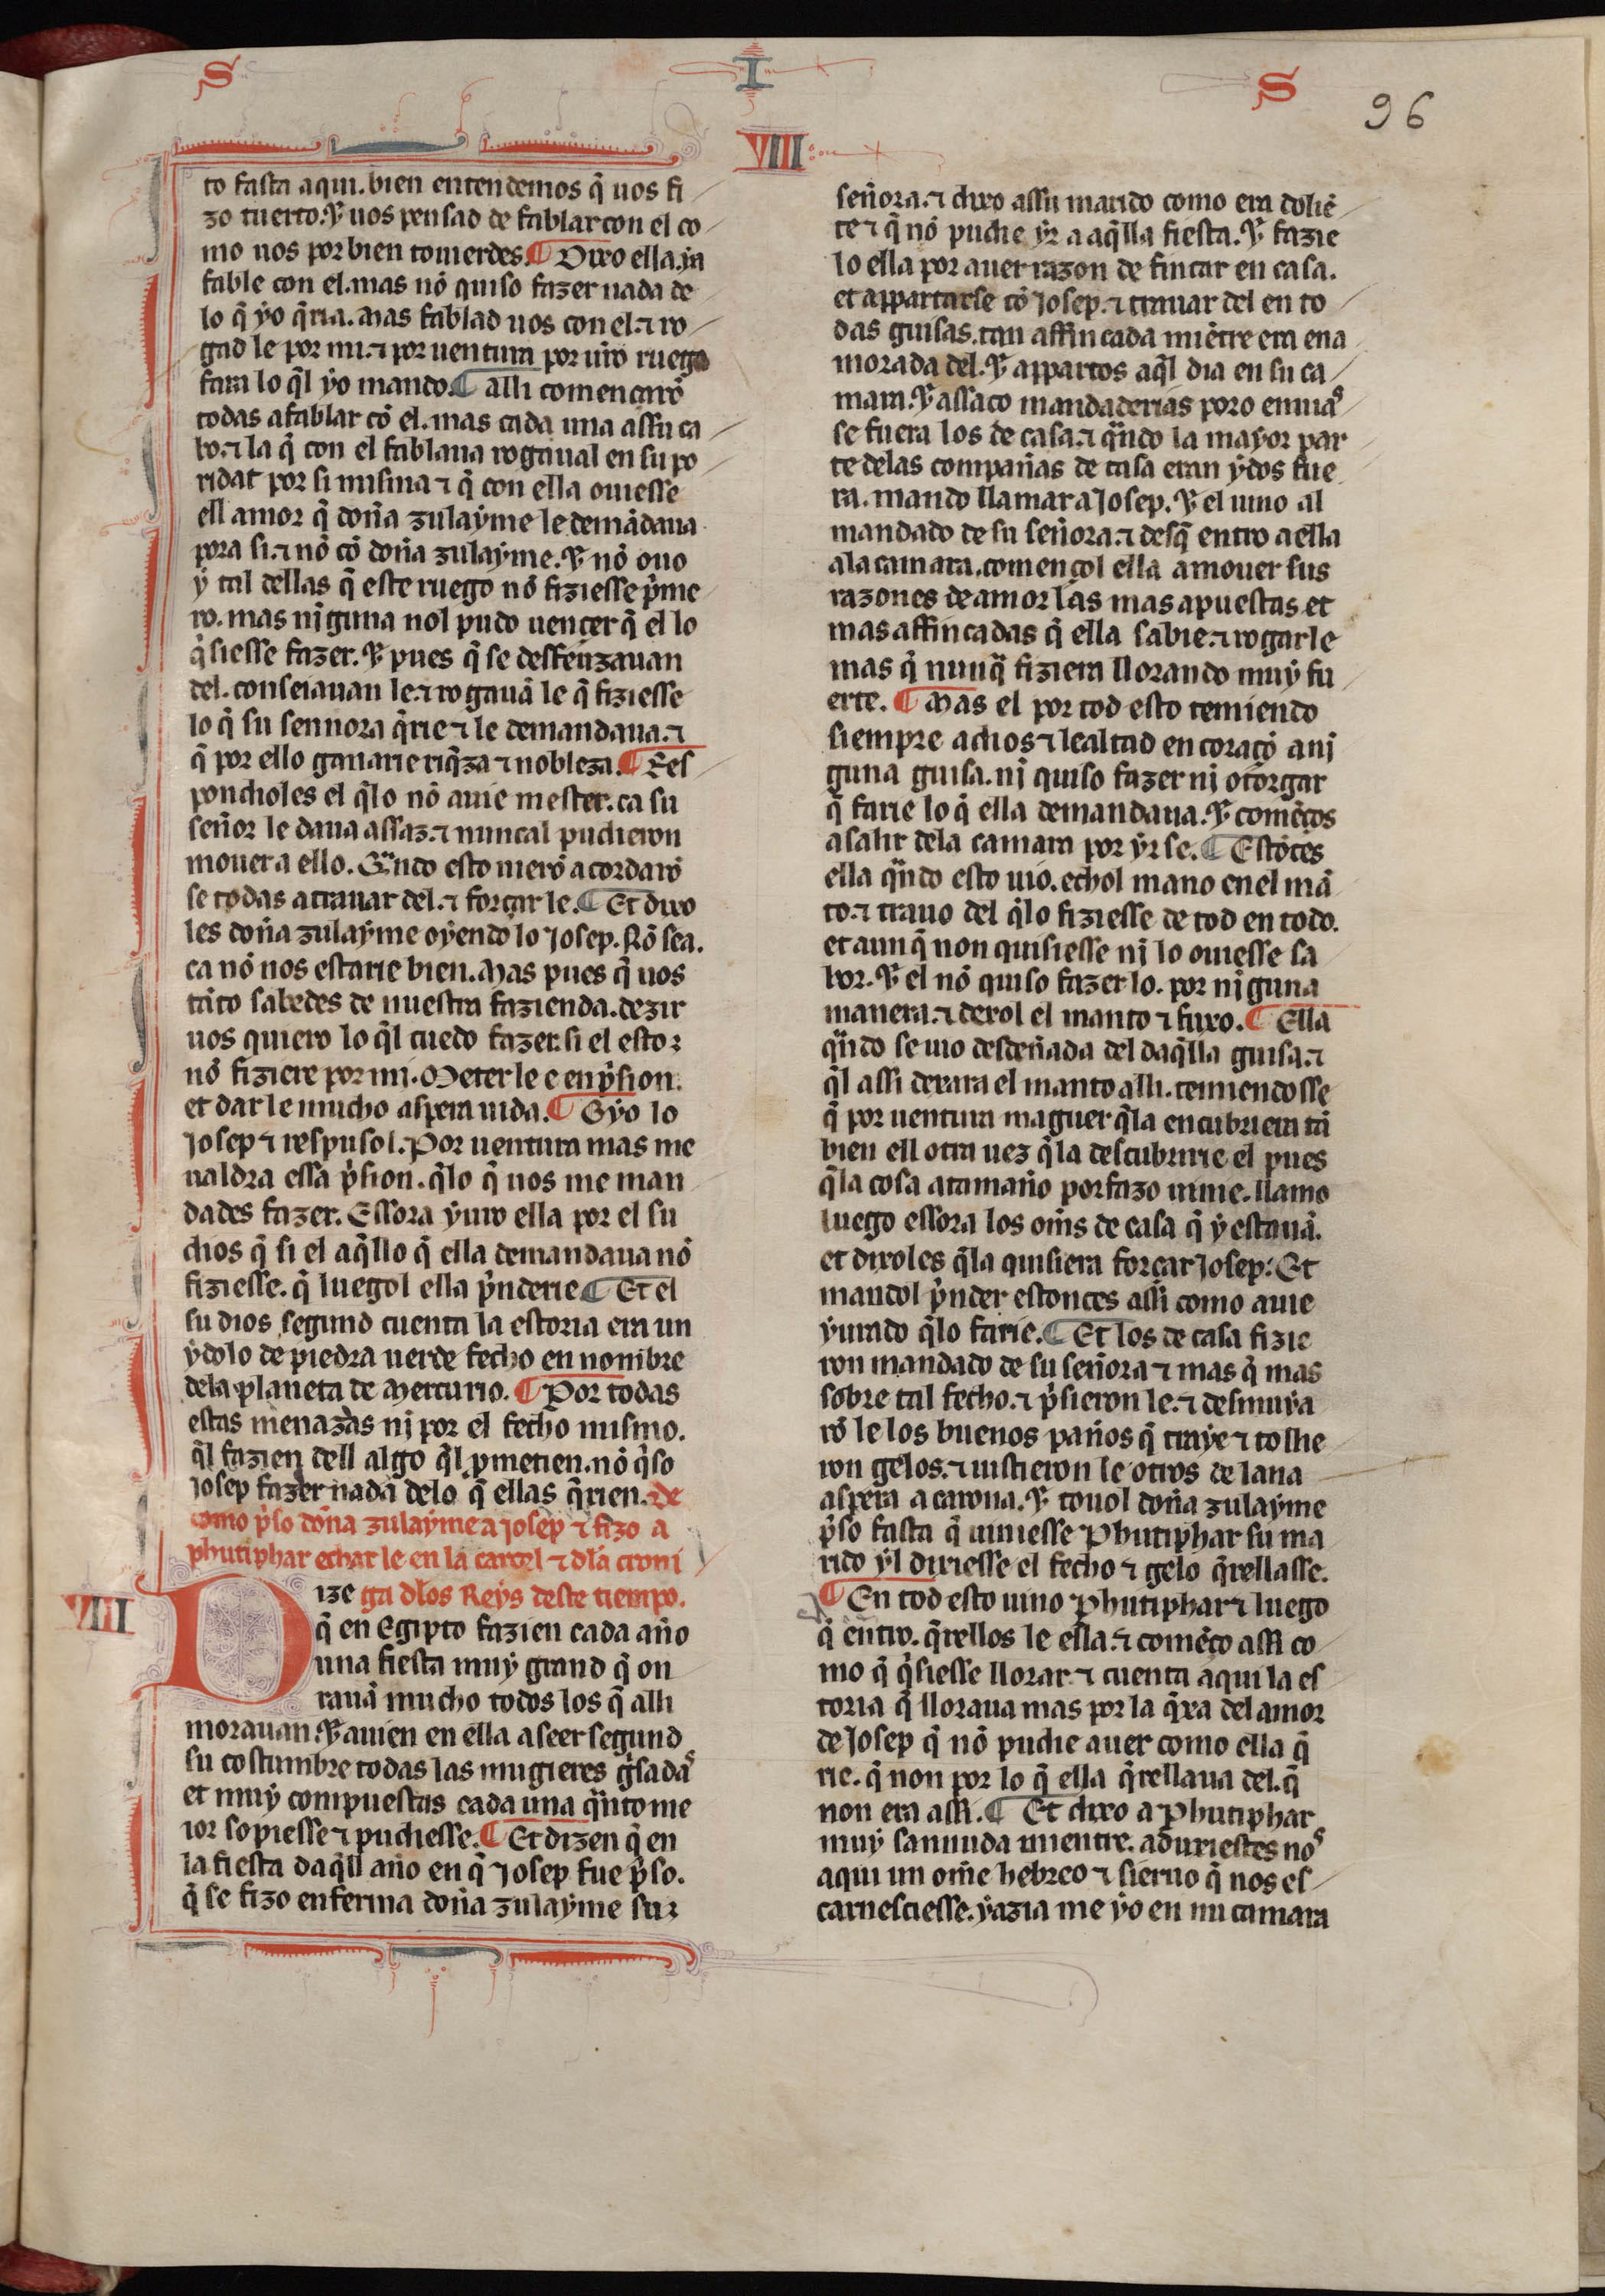 S I S
96
VIII
to fasta aqui. bien entendemos q̃ uos fi
zo tuerto. Ɣ uos pensad de fablar con el co
mo uos por bien touierdes. ¶ Dixo ella. ya
fable con el. mas nõ quiso fazer nada de
lo q̃ ẏo q̃ria. Mas fablad uos con el. ⁊ ro
gad le por mi. ⁊ por uentura por ur̃o ruego
fara lo q̃l ẏo mando. ¶ alli començarõ
todas a fablar cõ el. mas cada una assu ca
bo. ⁊ la q̃ con el fablaua rogaual en su po
ridat por si misma ⁊ q̃ con ella ouiesse
ell amor q̃ doña zulaẏme le demãdaua
pora si. ⁊ nõ cõ doña zulaẏme. Ɣ nõ ouo
ẏ tal dellas q̃ este ruego nõ fiziesse p̃me
ro. mas niguna nol pudo uençer q̃ el lo
q̃siesse fazer. Ɣ pues q̃ se desfeuzauan
del. conseiauan le. ⁊ rogauã le q̃ fiziesse
lo q̃ su sennora q̃rie ⁊ le demandaua. ⁊
q̃ por ello ganarie riq̃za ⁊ nobleza. ¶ Res
pondioles el q̃lo nõ auie mester. ca su
señor le daua assaz. ⁊ nuncal pudieron
mouer a ello. Q̃ndo esto uierõ acordarõ
se todas a trauar del. ⁊ forçar le. ¶ Et dixo
les doña zulaẏme oẏendo lo Josep. Nõ sea.
ca nõ nos estarie bien. Mas pues q̃ uos
tãto sabedes de nuestra fazienda. dezir
uos quiero lo q̃l cuedo fazer. si el esto
nõ fiziere por mi. Meter le e en p̃sion.
et dar le mucho aspera uida. ¶ Oẏo lo
Josep ⁊ respusol. Por uentura mas me
ualdra essa p̃sion. q̃lo q̃ uos me man
dades fazer. Essora ẏuro ella por el su
dios q̃ si el aq̃llo q̃ ella demandaua nõ
fiziesse. q̃ luegol ella p̃nderie ¶ Et el
su dios segund cuenta la estoria era un
ẏdolo de piedra uerde fecho en nombre
dela planeta de Mercurio. ¶ Por todas
estas menazas ni por el fecho mismo.
q̃l fazien dell algo q̃l p̃metien. nõ q̃so
Josep fazer nada delo q̃ ellas q̃rien. de
como p̃so doña zulaẏme a Josep ⁊ fizo a
phutiphar echar le en la carcel ⁊ dla croni
VIII
Dize ga dlos Reẏs deste tiempo.
q̃ en Egipto fazien cada año
una fiesta muẏ grand q̃ on
rauã mucho todos los q̃ alli
morauan. Ɣ auien en ella a seer segund
su costumbre todas las mugieres g̃sadas
et muẏ compuestas cada una q̃nto me
ior sopiesse ⁊ pudiesse. ¶ Et dizen q̃ en
la fiesta daq̃ll año en q̃ Josep fue p̃so.
q̃ se fizo enferma doña zulaẏme su
señora. ⁊ dixo assu marido como era doliẽ
te ⁊ q̃ nõ pudie ẏr a aq̃lla fiesta. Ɣ fazie
lo ella por auer razon de fincar en casa.
et appartarse cõ Josep. ⁊ trauar del en to
das guisas. tan affincada miẽtre era ena
morada del. Ɣ appartos aq̃l dia en su ca
mara. Ɣ assaco mandaderias poro enuias
se fuera los de casa. ⁊ q̃ndo la mayor par
te delas compañas de casa eran ẏdos fue
ra. mando llamar a Josep. Ɣ el uino al
mandado de su señora. ⁊ desq̃ entro a ella
ala camara. començol ella a mouer sus
razones de amor las mas apuestas. et
mas affincadas q̃ ella sabie. ⁊ rogarle
mas q̃ nunq̃ fiziera llorando muẏ fu
erte. ¶ Mas el por tod esto temiendo
siempre a dios ⁊ lealtad en coraçõ a ni
guna guisa. ni quiso fazer ni otorgar
q̃ farie lo q̃ ella demandaua. Ɣ comẽços
a salir dela camara por ẏr se. ¶ Estõces
ella q̃ndo esto uio. echol mano en el mã
to. ⁊ trauo del q̃lo fiziesse de tod en todo.
et aunq̃ non quisiesse ni lo ouiesse sa
bor. Ɣ el nõ quiso fazer lo. por niguna
manera. ⁊ dexol el manto ⁊ fuxo. ¶ Ella
q̃ndo se uio desdeñada del daq̃lla guisa. ⁊
q̃l assi dexara el manto alli. temiendosse
q̃ por uentura maguer q̃la encubriera tã
bien ell otra uez q̃la descubririe el pues
q̃la cosa a tamaño porfazo uinie. llamo
luego essora los oms̃ de casa q̃ ẏ estauã.
et dixoles q̃la quisiera forçar Josep. Et
mandol p̃nder estonces assi como auie
ẏurado q̃lo farie. ¶ Et los de casa fizie
ron mandado de su señora ⁊ mas q̃ mas
sobre tal fecho. ⁊ p̃sieron le. ⁊ desnuya
rõ le los buenos paños q̃ traẏe ⁊ tollie
ron gelos. ⁊ uistieron le otros de lana
aspera a carona. Ɣ touol doña zulaẏme
p̃so fasta q̃ uiniesse Phutiphar su ma
rido ẏl dixiesse el fecho ⁊ gelo q̃rellasse.
¶ En tod esto uino Phutiphar ⁊ luego
q̃ entro. q̃rellos le ella. ⁊ comẽço assi co
mo q̃ q̃siesse llorar. ⁊ cuenta aqui la es
toria q̃ lloraua mas por la q̃xa del amor
de Josep q̃ nõ pudie auer como ella q̃
rie. q̃ non por lo q̃ ella q̃rellaua del. q̃
non era assi. ¶ Et dixo a Phutiphar
muẏ sannuda mientre. aduxiestes nos
aqui un om̃e hebreo ⁊ sieruo q̃ nos es
carnesciesse. ẏazia me ẏo en mi camara